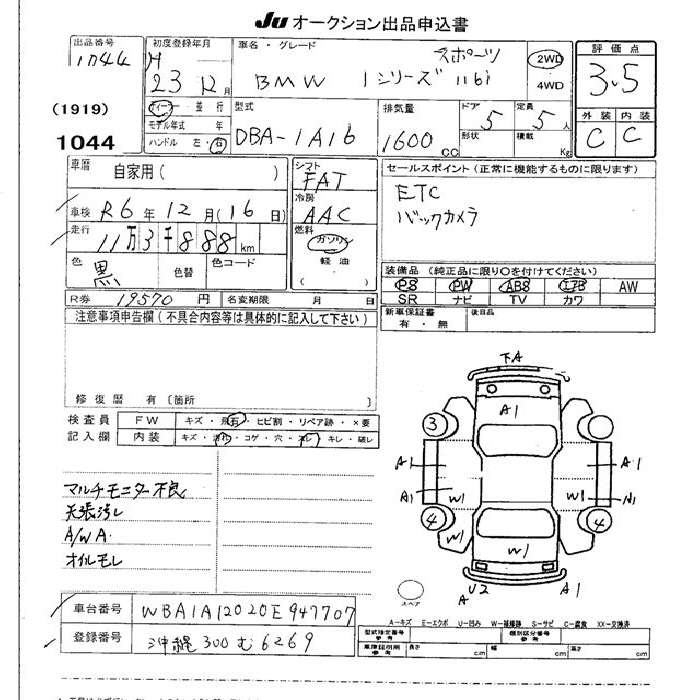 Ju オークション出品申込書
出品番号
1044
(1919)
1044
初度登録年月
H
23 12月
ディーラー・並行
モデル年式 年
ハンドル 左・右
車名・グレード
スポーツ
BMW 1シリーズ 116i
2WD
4WD
評価点
3.5
外装 内装
C C
型式
DBA-1A16
排気量
1600 CC
ドア
5
形状
定員
5人
積載
Kg
車歴
自家用( )
車検 R6年12月(16日)
走行 11万3千888km
色 黒
色替
色コード
R券 19570円
名変期限 月 日
シフト
FAT
冷房
AAC
燃料
ガソリン
軽油
( )
セールスポイント(正常に機能するものに限ります)
ETC
バックカメラ
装備品(純正品に限り○を付けてください)
PS PW ABS エアB AW
SR ナビ TV カワ
新車保証書
有・無
後日品
注意事項申告欄(不具合内容等は具体的に記入して下さい)
修復歴 有〔箇所 〕
検査員
記入欄
FW キズ・飛石・ヒビ割・リペア跡・×要
内装 キズ・汚れ・コゲ・穴・スレ・キレ・破レ
マルチモニター不良
天張汚レ
A/W A
オイルモレ
下A
A1
3
A1 A1
A1 W1 W1 A1
4 4
W1 W1
A U2 A1
スペア
A－キズ E－エクボ U－凹み W－補修跡 S－サビ C－腐食 XX－交換済
車台番号 WBA1A12020E947707
登録番号 沖縄 300 む 6269
型式指定番号
参考
類別区分番号
参考
車庫証明用
参考
長さ cm 幅 cm 高さ cm